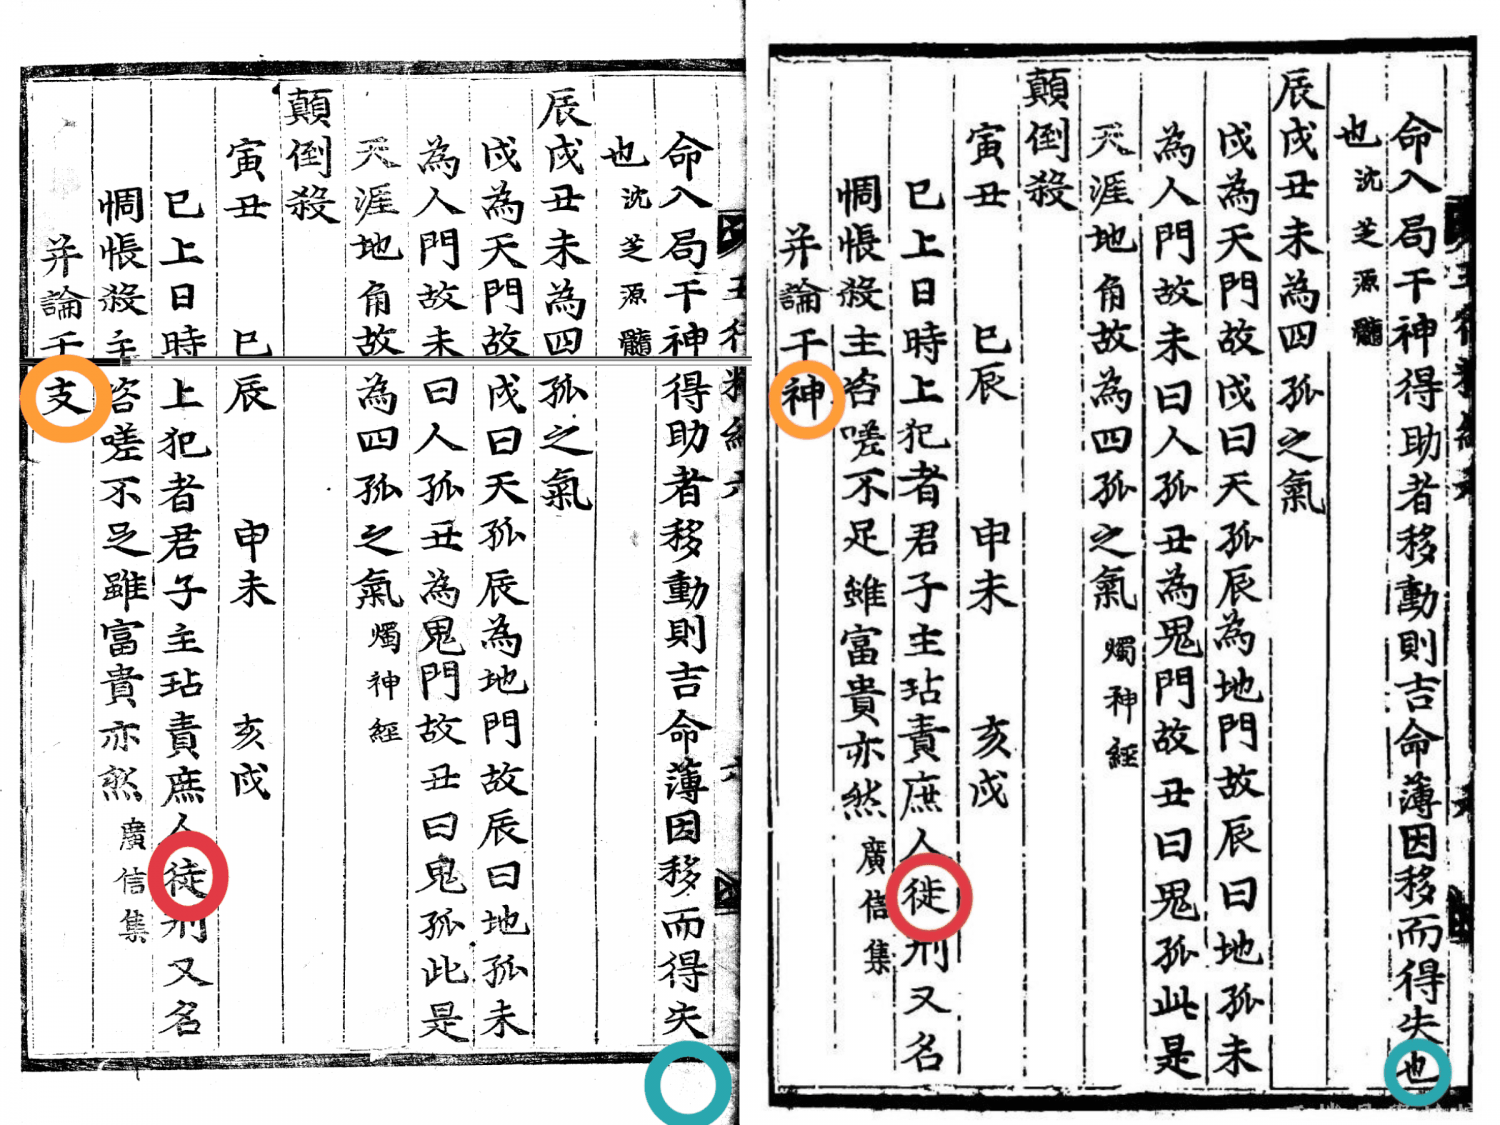 命入局干神得助者移動則吉命薄因移而得失
也沈芝源髓
辰戌丑未為四孤之氣
戌為天門故戌曰天孤辰為地門故辰曰地孤未
為人門故未曰人孤丑為鬼門故丑曰鬼孤此是
天涯地角故為四孤之氣燭神經
顛倒殺
寅丑 巳辰 申未 亥戌
巳上日時上犯者君子主玷責庶人徒刑又名
惆悵殺主咨嗟不足雖富貴亦然廣信集
并論干支
命入局干神得助者移動則吉命薄因移而得失也
也沈芝源髓
辰戌丑未為四孤之氣
戌為天門故戌曰天孤辰為地門故辰曰地孤未
為人門故未曰人孤丑為鬼門故丑曰鬼孤此是
天涯地角故為四孤之氣燭神經
顛倒殺
寅丑 巳辰 申未 亥戌
巳上日時上犯者君子主玷責庶人徙刑又名
惆悵殺主咨嗟不足雖富貴亦然廣信集
并論干神